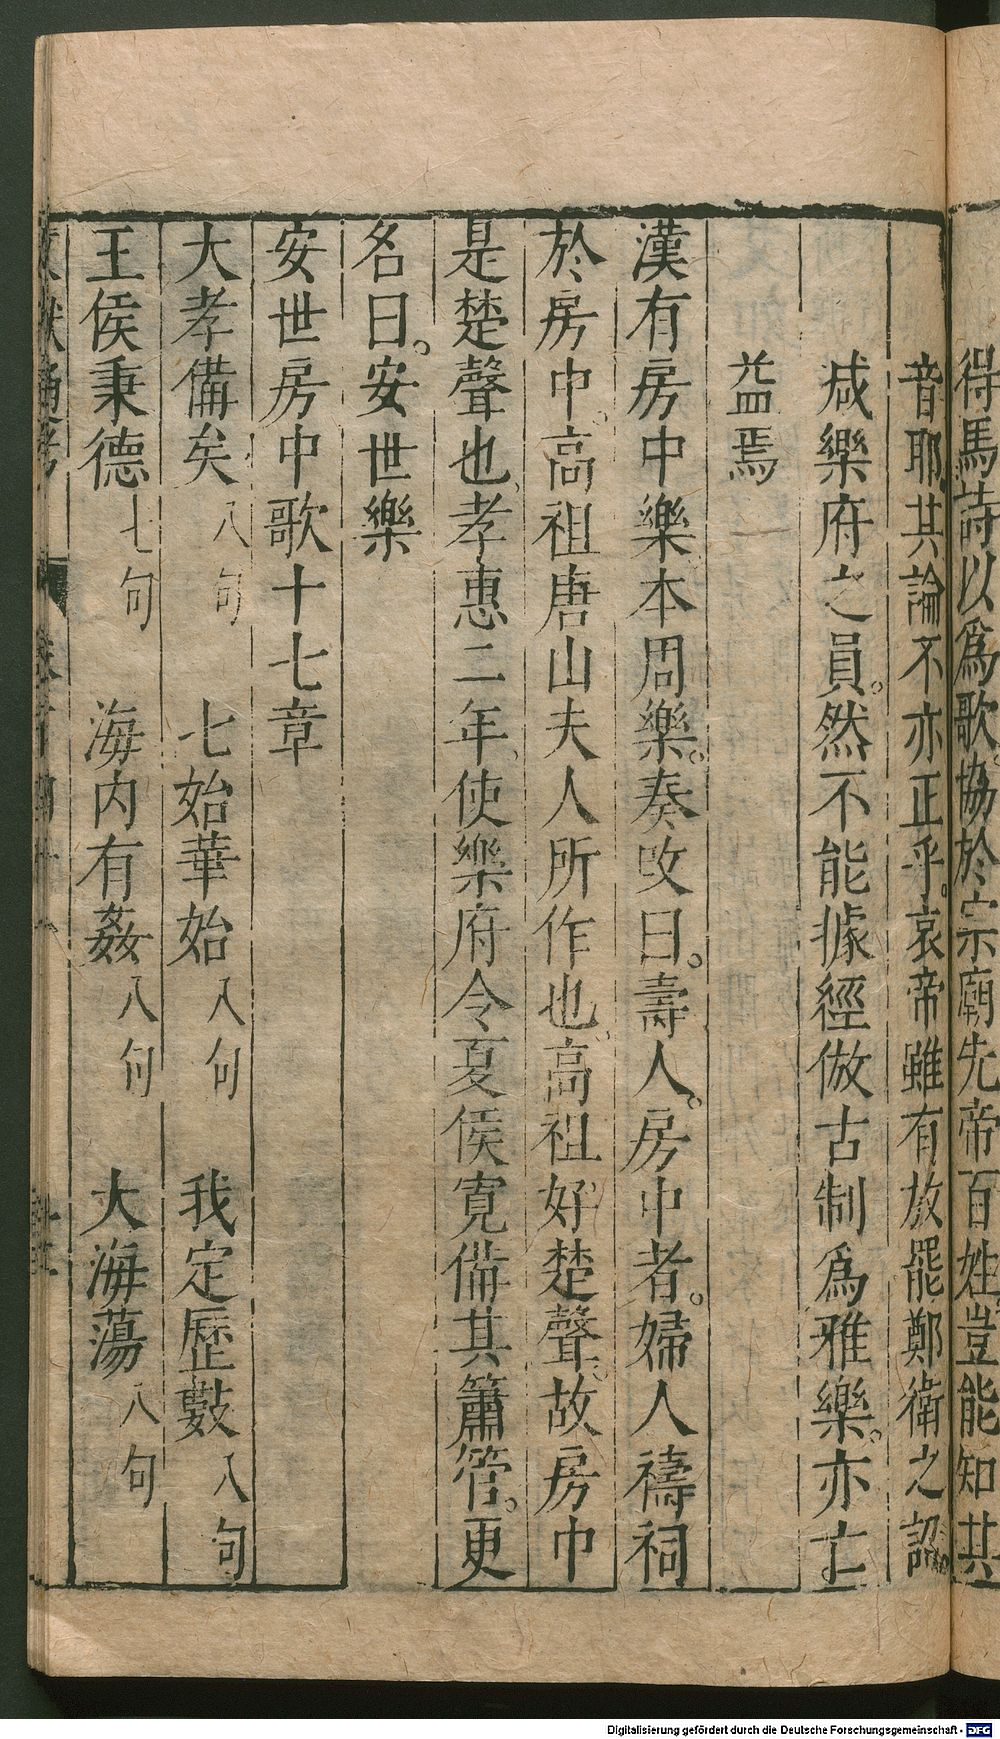 得馬詩以爲歌協於宗廟先帝百姓豈能知其
音耶其論不亦正乎哀帝雖有放罷鄭衛之詔
减樂府之員然不能據經倣古制爲雅樂亦亡
益焉
漢有房中樂本周樂奏改曰壽人房中者婦人禱祠
於房中高祖唐山夫人所作也高祖好楚聲故房中
是楚聲也孝惠二年使樂府令夏侯寬備其簫管更
名曰安世樂
安世房中歌十七章
大孝備矣八句 七始華始八句 我定歷數八句
王侯秉德七句 海内有姦八句 大海蕩八句
Digitalisierung gefördert durch die Deutsche Forschungsgemeinschaft - DFG